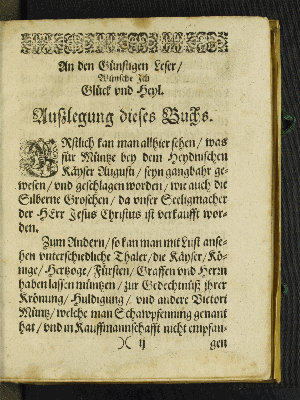 An den Günstigen Leser/
Wünsche Ich
Glück vnd Heyl.
Außlegung dieses Buchs.
ERstlich kan man allhier sehen / was
für Müntze bey dem Heydnischen
Käyser Augusti / seyn gangbahr ge-
wesen / vnd geschlagen worden / wie auch die
Silberne Groschen / da vnser Seeligmacher
der HErr Jesus Christus ist verkaufft wor-
den.
Zum Andern / so kan man mit Lust anse-
hen vnterschiedliche Thaler / die Käyser / Kö-
nige / Hertzoge / Fürsten / Graffen vnd Herrn
haben lassen müntzen / zur Gedechtnüß jhrer
Krönung / Huldigung / vnd andere Victori
Müntz / welche man Schawpfennung genant
hat / vnd in Kauffmannschafft nicht empfan-
)( ij gen